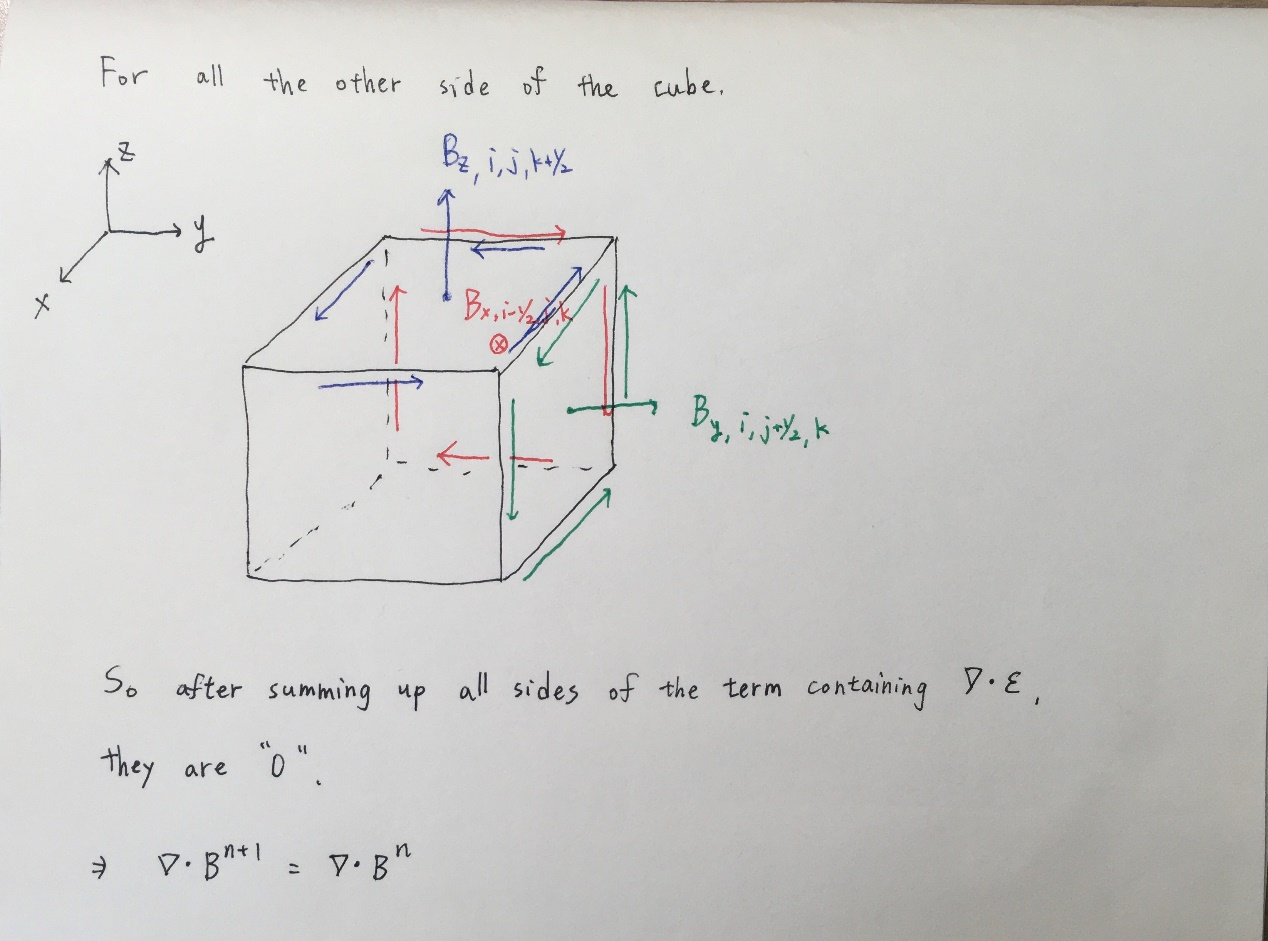 For all the other side of the cube.
z
y
x
B_{z, i, j, k+1/2}
B_{x, i-1/2, j, k}
B_{y, i, j+1/2, k}
So after summing up all sides of the term containing ∇·ε,
they are "0".
⇒ ∇·B^{n+1} = ∇·B^n